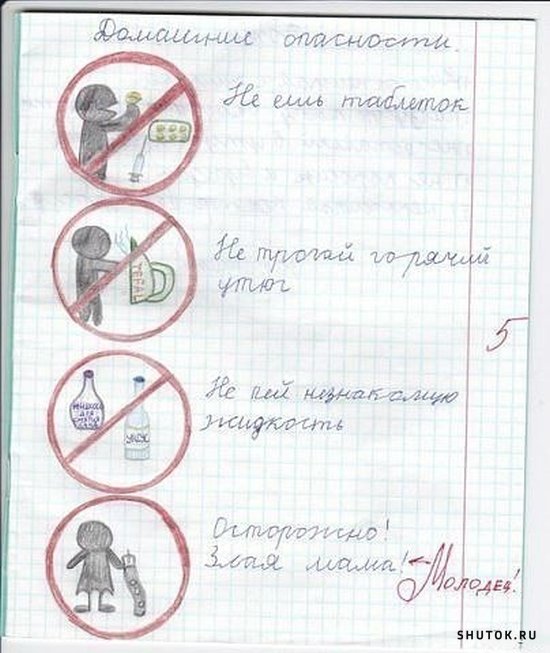 Домашние опасности.
Не ешь таблеток
Не трогай горячий
утюг
TEFAL
5
Не пей незнакомую
жидкость
жидкость
для
снятия
лака
УКСУС
Осторожно!
Злая мама!
Молодец!
SHUTOK.RU